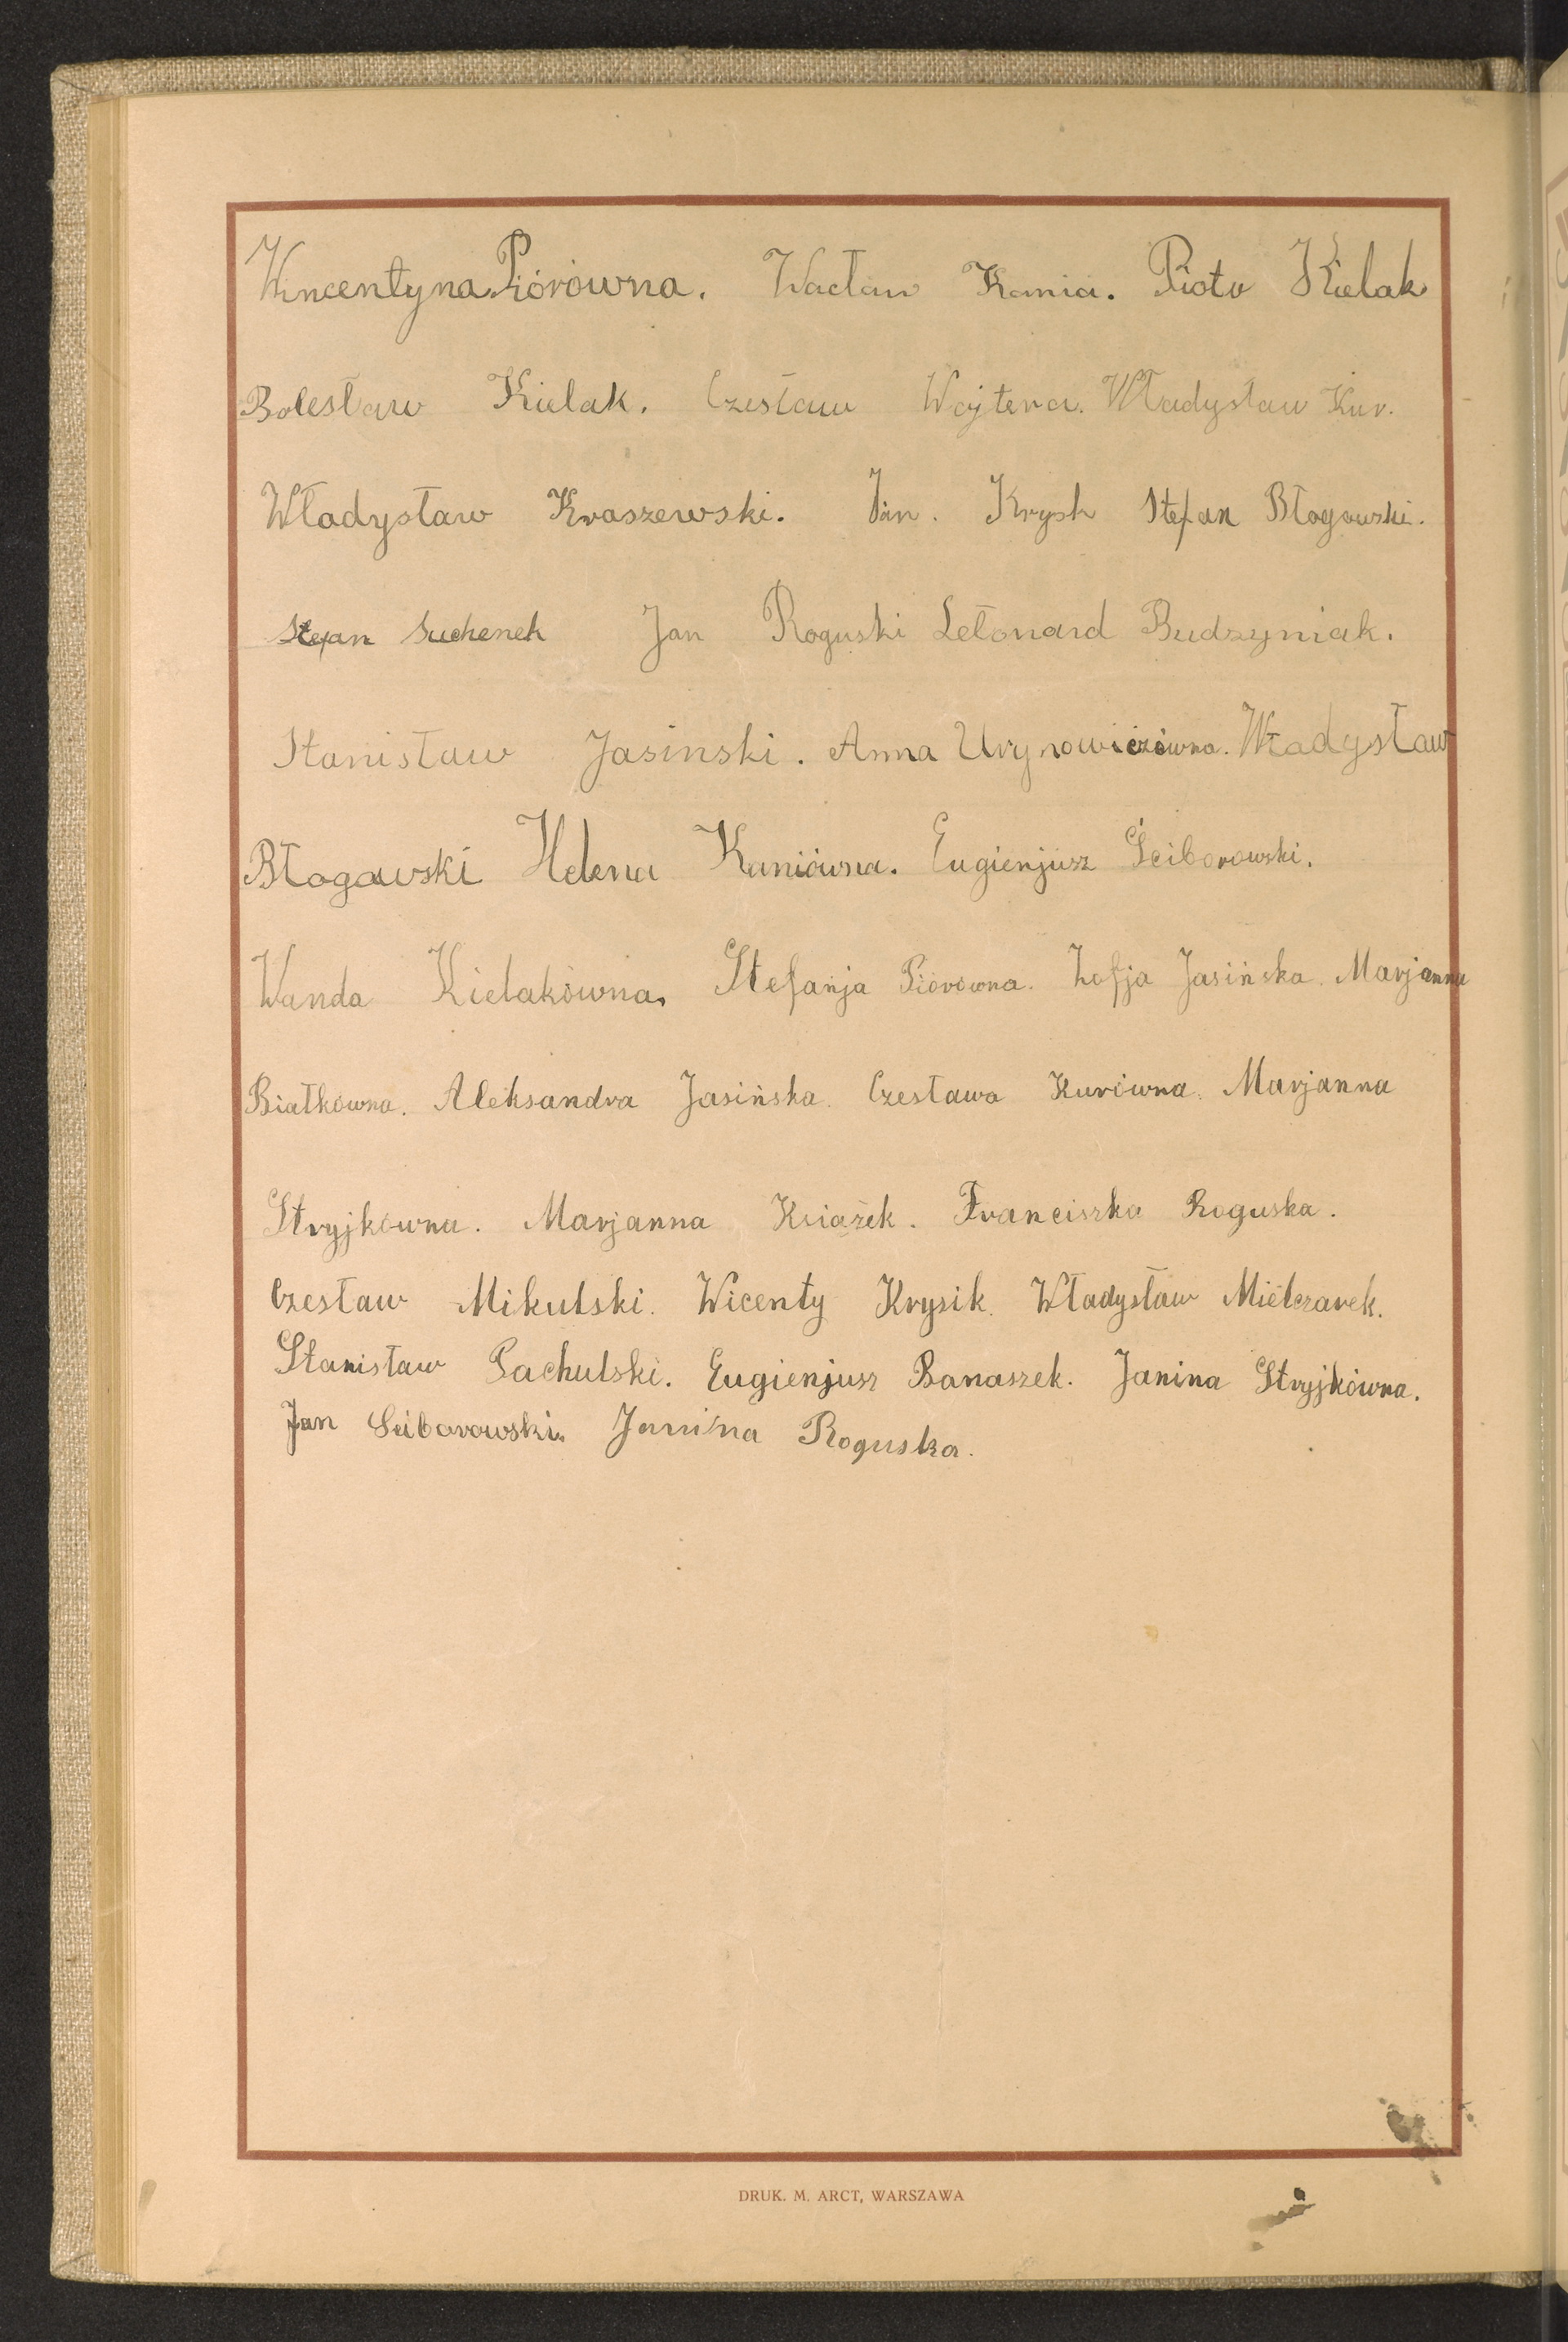 Wincentyna Piórówna. Wacław Kania. Piotr Kielak
Bolesław Kielak. Czesław Wojtera. Władysław Kur.
Władysław Kraszewski. Jan. Krysk Stefan Błogowski.
Stefan Suchenek Jan Roguski Letonard Budzyniak.
Stanisław Jasinski. Anna Urynowiczówna. Władysław
Błogowski Helena Kaniówna. Eugienjusz Ściborowski.
Wanda Kielakówna. Stefanja Piórówna. Zofja Jasińska. Marjanna
Białkówna. Aleksandra Jasińska. Czesława Kurówna. Marjanna
Stryjkówna. Marjanna Książek. Franciszka Roguska.
Czesław Mikulski. Wicenty Krysik. Władysław Mielczarek.
Stanisław Pachulski. Eugienjusz Banaszek. Janina Stryjkówna.
Jan Sciborowski. Janina Roguska.
DRUK. M. ARCT, WARSZAWA